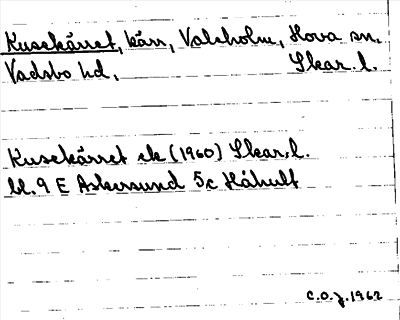 Kusekärret, kärr, Valsholm, Hova sn.
Vadsbo hd. Skar. l.
Kusekärret ek (1960) Skar. l.
bl. 9 E Askersund 5c Håhult
C.O.J. 1962